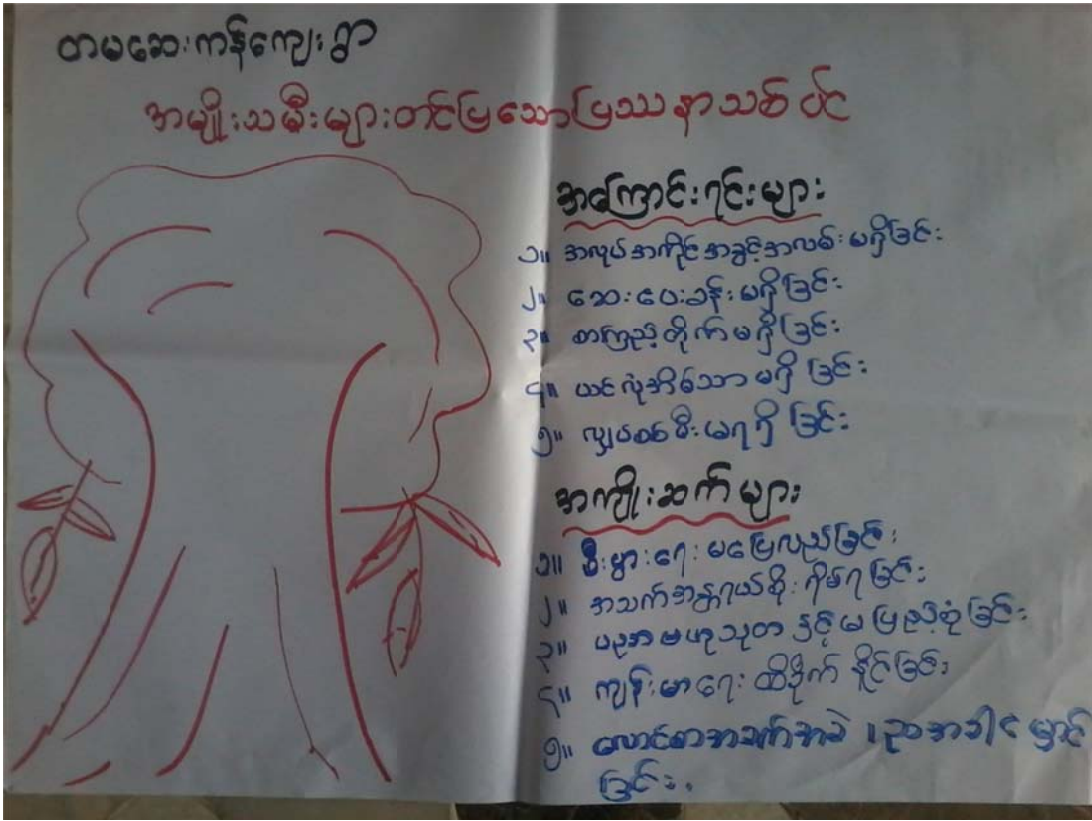 တမဆေးကန်ကျေးရွာ
အမျိုးသမီးများတင်ပြသောပြဿနာသစ်ပင်
အကြောင်းရင်းများ
၁။ အလုပ်အကိုင်အခွင့်အလမ်းမရှိခြင်း
၂။ ဆေးပေးခန်းမရှိခြင်း
၃။ စာကြည့်တိုက်မရှိခြင်း
၄။ ယင်လုံအိမ်သာမရှိခြင်း
၅။ လျှပ်စစ်မီးမရရှိခြင်း
အကျိုးဆက်များ
၁။ စီးပွားရေးမပြေလည်ခြင်း
၂။ အသက်အန္တရာယ်စိုးရိမ်ရခြင်း
၃။ ပညာဗဟုသုတနှင့်မပြည့်စုံခြင်း
၄။ ကျန်းမာရေးထိခိုက်နိုင်ခြင်း
၅။ လောင်စာအခက်အခဲ ၊ ညအခါမှောင်
ခြင်း.